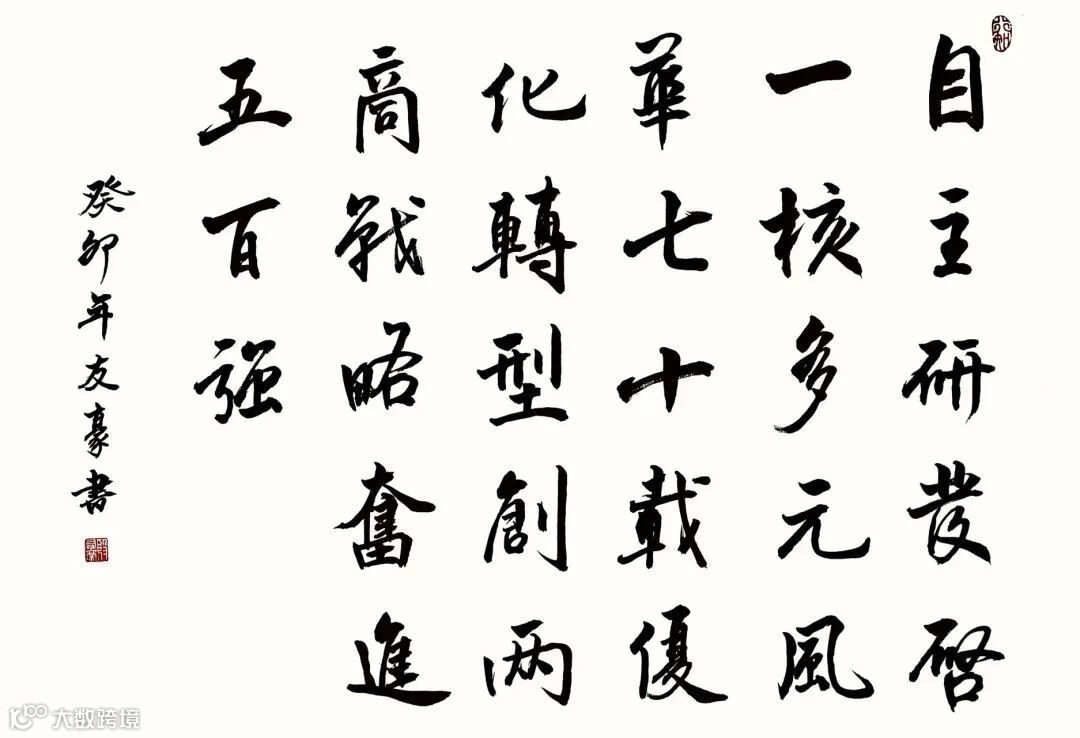 自主研發啓
一核多元風
華七十載優
化轉型創兩
高戰略奮進
五百强
癸卯年友豪書
大数跨境